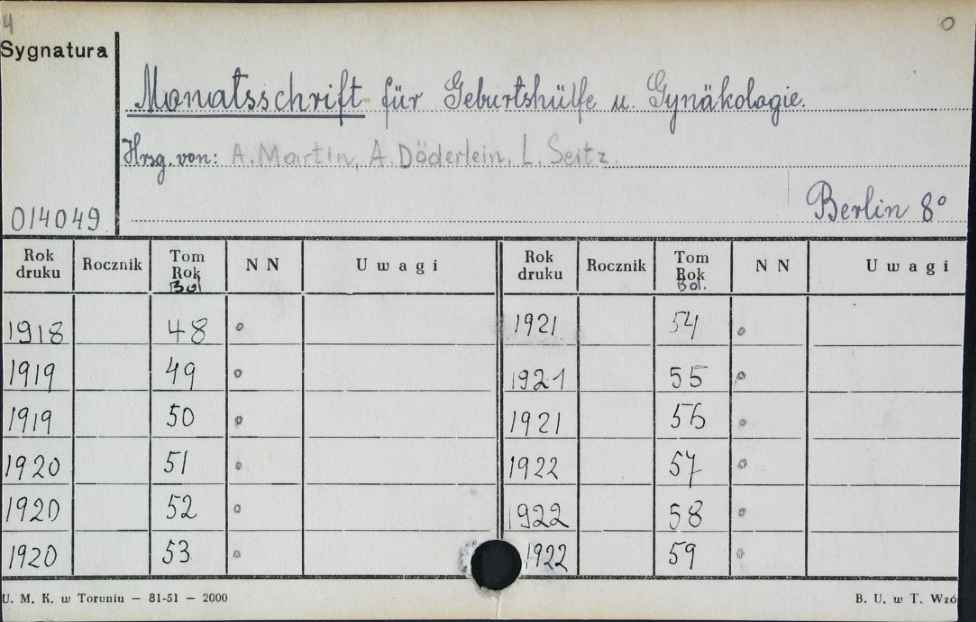 4
0
Sygnatura
Monatsschrift für Geburtshülfe u. Gynäkologie.
Hrsg. von: A. Martin, A. Döderlein, L. Seitz.
Berlin 8°
014049
Rok druku Rocznik Tom Rok Bd N N Uwagi Rok druku Rocznik Tom Rok Bd. N N Uwagi
1918 48 o 1921 54 o
1919 49 o 1921 55 o
1919 50 o 1921 56 o
1920 51 o 1922 57 o
1920 52 o 1922 58 o
1920 53 o 1922 59 o
U. M. K. w Toruniu — 81-51 — 2000 B. U. w T. Wzó